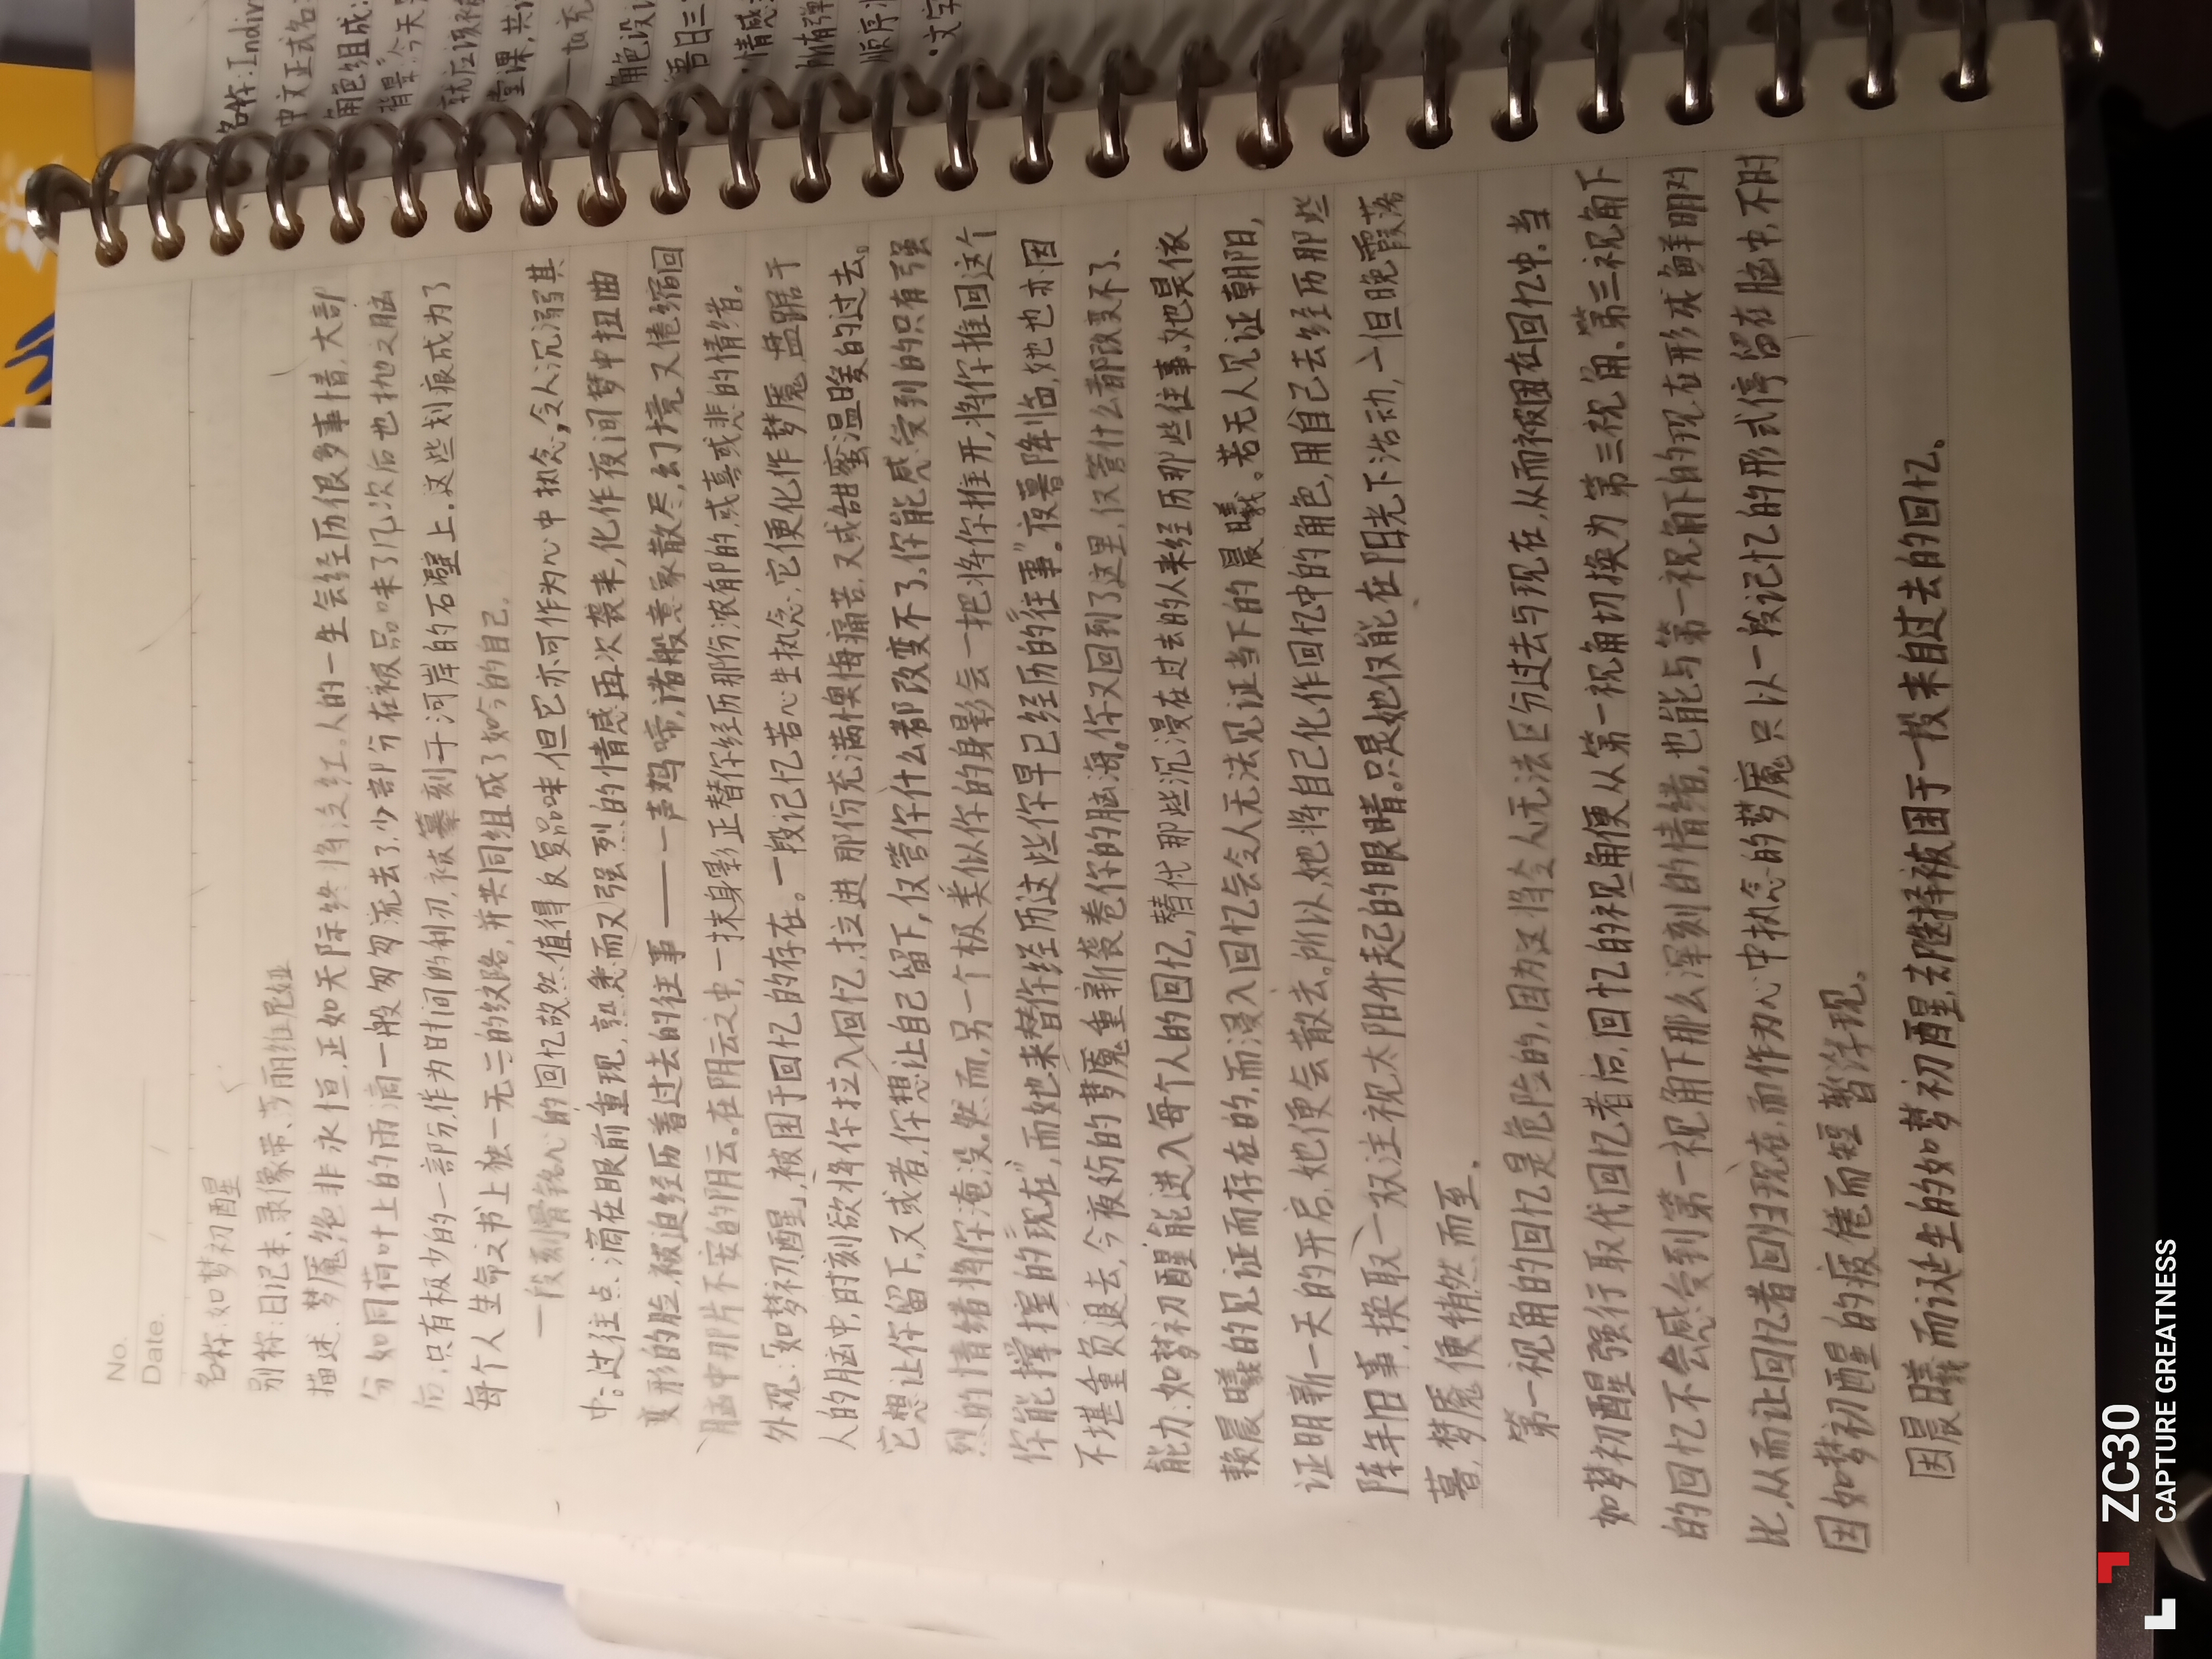 名称:Indiv
中文正式名:
角色组成:
背景:今天
就应该被
堂课,共
角色设计
吾日三
情感
所有弹
顺序
·文字
No.
Date.
名称:如梦初醒
别称:日记本、录像带、芳丽维尼娅
描述:梦魇,绝非永恒,正如天际终将泛红。人的一生会经历很多事情,大部
分如同荷叶上的雨滴一般匆匆流去了,少部分在被品味了几次后也抛之脑
后,只有极少的一部分,作为时间的利刃,被纂刻于河岸的石壁上.这些划痕成为了
每个人生命之书上独一无二的纹路,并共同组成了如今的自己。
一段刻骨铭心的回忆故然值得反复品味,但它亦可作为心中执念,令人沉溺其
中。过往点滴在眼前重现,熟悉而又强烈的情感再次袭来,化作夜间梦中扭曲
变形的脸,被迫经历着过去的往事——一声鸡啼,诸般意象散尽,幻境又倦缩回
脑中那片不安的阴云。在阴云之中,一抹身影正替你经历那份浓郁的,或喜或悲的情绪。
外观:「如梦初醒」,被困于回忆的存在。一段记忆若心生执念,它便化作梦魇,盘踞于
人的脑中,时刻欲将你拉入回忆,拉进那份充满懊悔痛苦,又或甜蜜温暖的过去。
它想让你留下,又或者,你想让自己留下,仅管你什么都改变不了,你能感受到的只有强
烈的情绪将你淹没。然而,另一个极类似你的身影会一把将你推开,将你推回这个
你能掌握的"现在",而她来替你经历这些你早已经历的"往事"。夜暮降临,她也亦因
不堪重负退去,今夜份的梦魇重新袭卷你的脑海,你又回到了这里,仅管什么都改变不了、
能力:如梦初醒能进入每个人的回忆,替代那些沉浸在过去的人来经历那些往事,她是依
赖晨曦的见证而存在的,而浸入回忆会令人无法见证当下的晨曦。若无人见证朝阳,
证明新一天的开启,她便会散去。所以,她将自己化作回忆中的角色,用自己去经历那些
陈年旧事,换取一双注视太阳升起的眼睛。只是她仅能在阳光下活动,一但晚霞落
暮,梦魇便悄然而至.
第一视角的回忆是危险的,因为这将令人无法区分过去与现在,从而被困在回忆中.当
如梦初醒强行取代回忆者后,回忆的视角便从第一视角切换为第三视角、第三视角下
的回忆不会感受到第一视角下那么深刻的情绪,也能与第一视角下的现在形成鲜明对
比,从而让回忆者回归现在,而作为心中执念的梦魇只以一段记忆的形式停留在脑中,不时
因如梦初醒的疲倦而短暂浮现。
因晨曦而诞生的如梦初醒,去选择被困于一段来自过去的回忆。
ZC30
CAPTURE GREATNESS